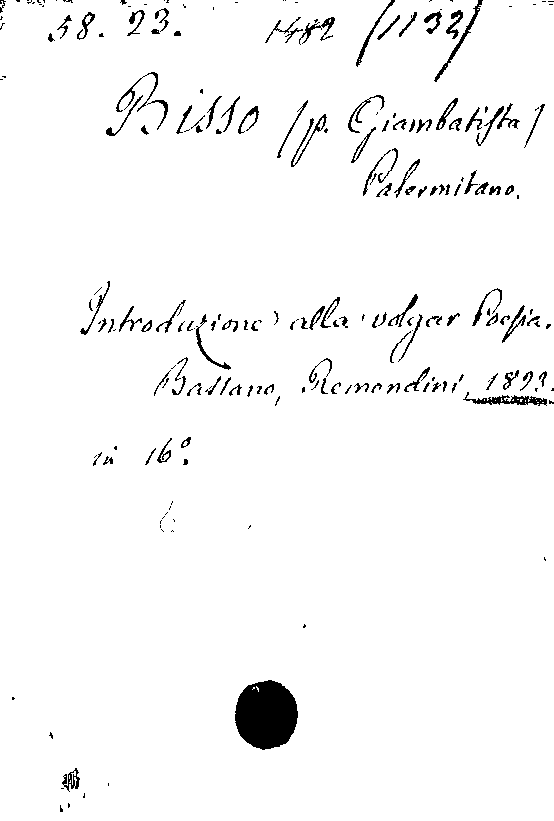 58. 23. 1482 (1132)
Bisso (p. Giambatista)
Palermitano.
Introduzione alla volgar Poesia.
Bassano, Remondini, 1823.
in 16º.